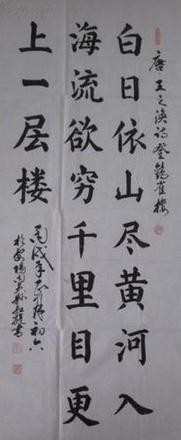 唐王之涣诗登鹳雀楼
白日依山尽黄河入
海流欲穷千里目更
上一层楼
丙戌年初六
书